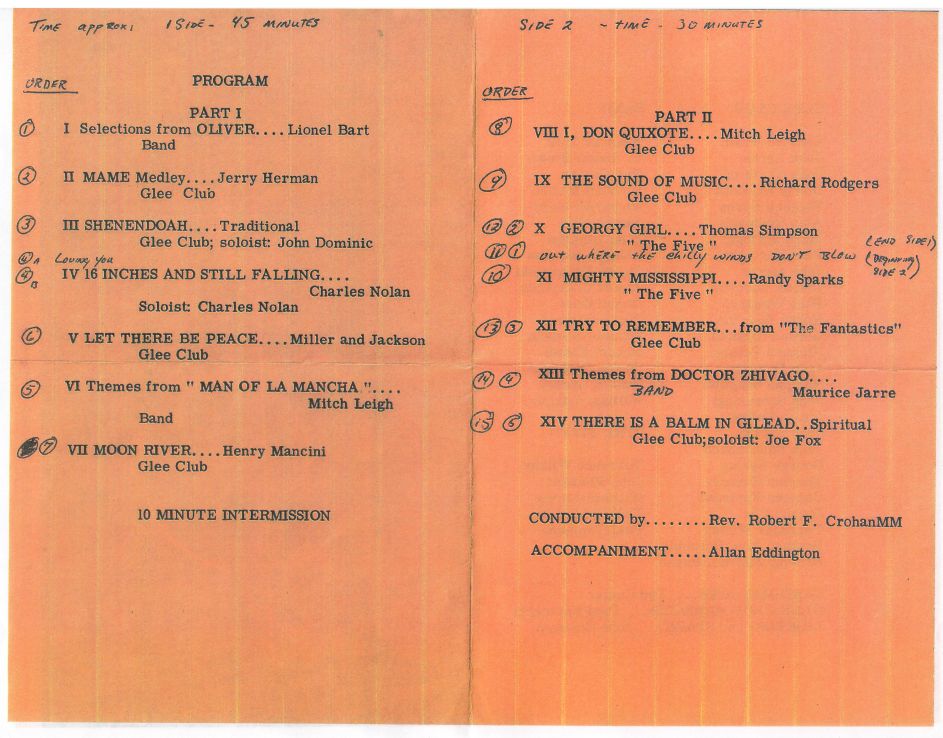 TIME APPROX: 1 SIDE - 45 MINUTES
ORDER
PROGRAM
PART I
1 I Selections from OLIVER....Lionel Bart
Band
2 II MAME Medley....Jerry Herman
Glee Club
3 III SHENENDOAH....Traditional
Glee Club; soloist: John Dominic
4A LOVING YOU
4B IV 16 INCHES AND STILL FALLING....
Charles Nolan
Soloist: Charles Nolan
6 V LET THERE BE PEACE....Miller and Jackson
Glee Club
5 VI Themes from " MAN OF LA MANCHA "....
Mitch Leigh
Band
7 VII MOON RIVER....Henry Mancini
Glee Club
10 MINUTE INTERMISSION
SIDE 2 - TIME - 30 MINUTES
ORDER
PART II
8 VIII I, DON QUIXOTE....Mitch Leigh
Glee Club
9 IX THE SOUND OF MUSIC....Richard Rodgers
Glee Club
12 2 X GEORGY GIRL....Thomas Simpson
" The Five " (END SIDE 1)
11 1 OUT WHERE THE CHILLY WINDS DON'T BLOW (BEGINNING SIDE 2)
10 XI MIGHTY MISSISSIPPI....Randy Sparks
" The Five "
13 3 XII TRY TO REMEMBER...from "The Fantastics"
Glee Club
14 4 XIII Themes from DOCTOR ZHIVAGO....
BAND Maurice Jarre
15 5 XIV THERE IS A BALM IN GILEAD..Spiritual
Glee Club;soloist: Joe Fox
CONDUCTED by........Rev. Robert F. CrohanMM
ACCOMPANIMENT.....Allan Eddington